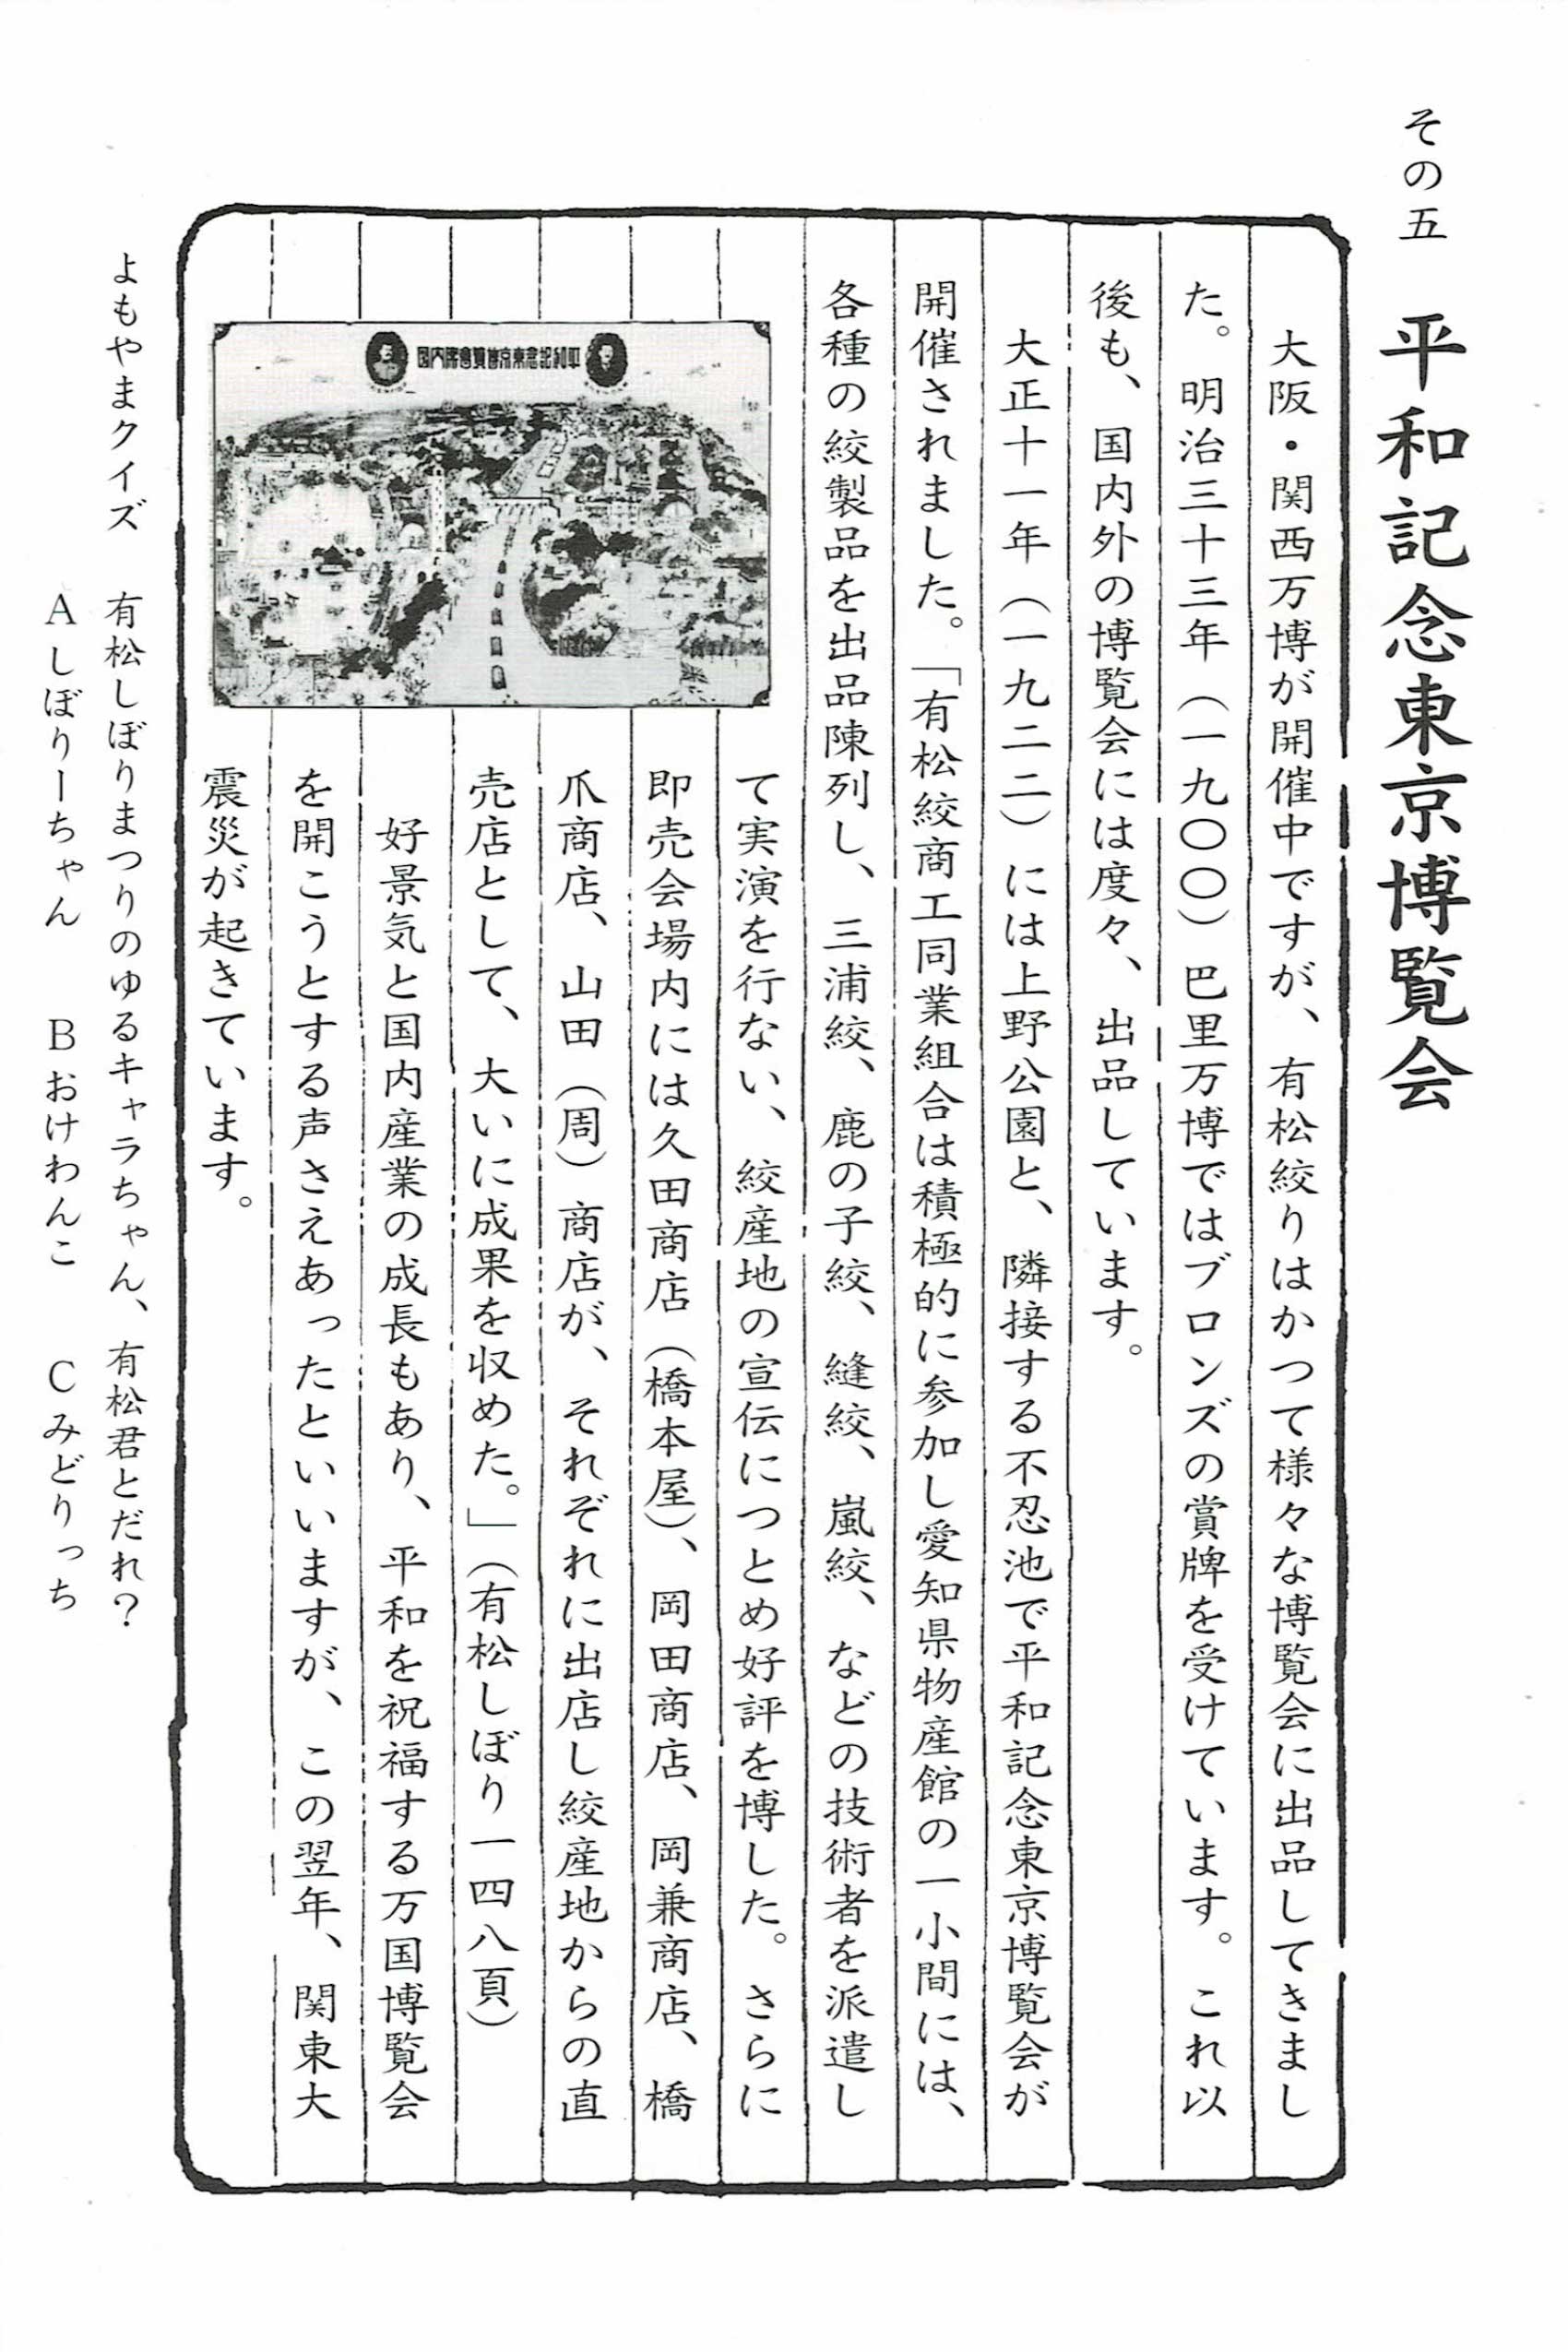 その五　平和記念東京博覧会
　大阪・関西万博が開催中ですが、有松絞りはかつて様々な博覧会に出品してきまし
た。明治三十三年（一九〇〇）巴里万博ではブロンズの賞牌を受けています。これ以
後も、国内外の博覧会には度々、出品しています。
　大正十一年（一九二二）には上野公園と、隣接する不忍池で平和記念東京博覧会が
開催されました。「有松絞商工同業組合は積極的に参加し愛知県物産館の一小間には、
各種の絞製品を出品陳列し、三浦絞、鹿の子絞、縫絞、嵐絞、などの技術者を派遣し
て実演を行ない、絞産地の宣伝につとめ好評を博した。さらに
即売会場内には久田商店（橋本屋）、岡田商店、岡兼商店、橋
爪商店、山田（周）商店が、それぞれに出店し絞産地からの直
売店として、大いに成果を収めた。」（有松しぼり一四八頁）
　好景気と国内産業の成長もあり、平和を祝福する万国博覧会
を開こうとする声さえあったといいますが、この翌年、関東大
震災が起きています。
平和記念東京博覽會場内図
よもやまクイズ　有松しぼりまつりのゆるキャラちゃん、有松君とだれ？
Aしぼりーちゃん　Bおけわんこ　Cみどりっち